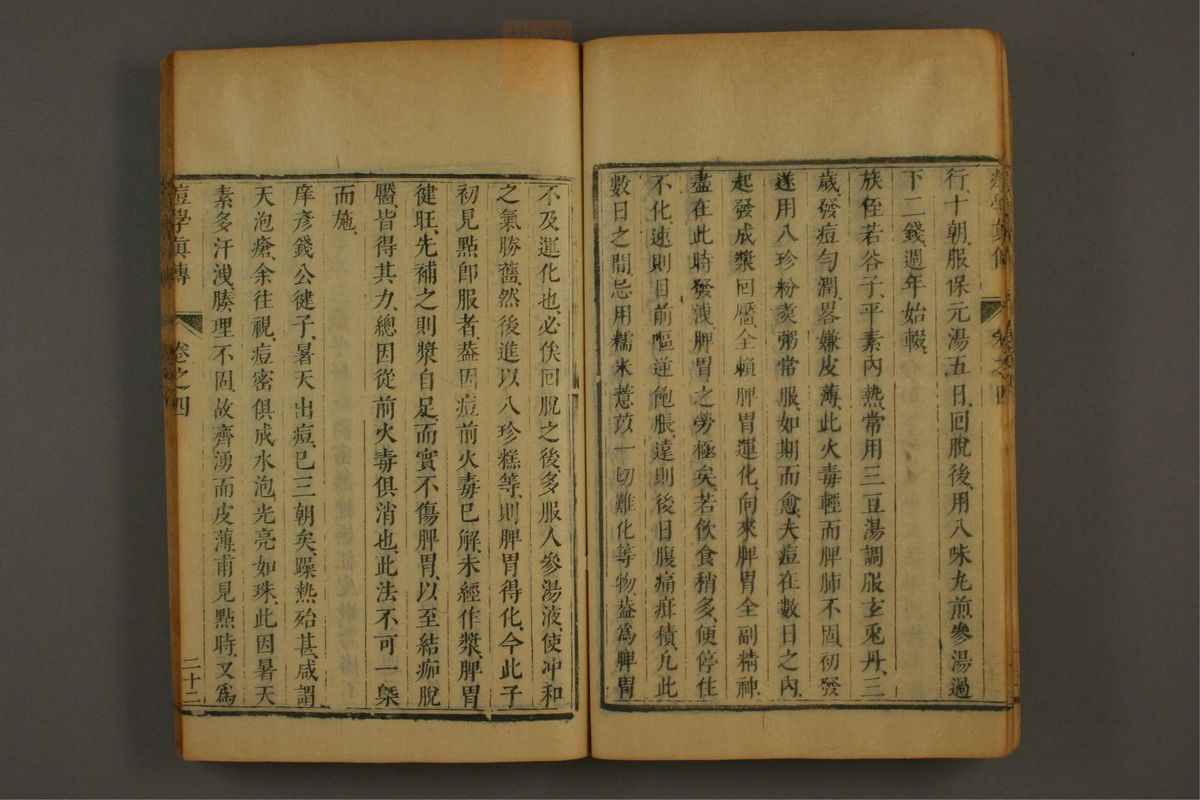 行十朝服保元湯五日回脫後用八味丸煎參湯過
下二錢週年始輟
族侄若谷子平素內熱常用三豆湯調服玄兎丹三
歲發痘勻潤畧嫌皮薄此火毒輕而脾肺不固初發
遂用八珍粉煑粥常服如期而愈夫痘在數日之內
起發成漿回靨全賴脾胃運化向來脾胃全副精神
盡在此時發洩脾胃之勞極矣若飲食稍多便停住
不化速則目前嘔逆飽脹遠則後日腹痛疳積凡此
數日之間忌用糯米薏苡一切難化等物葢為脾胃
不及運化也必俟回脫之後多服人參湯液使冲和
之氣勝舊然後進以八珍糕等則脾胃得化今此子
初見點卽服者葢因痘前火毒已解未經作漿脾胃
健旺先補之則漿自足而實不傷脾胃以至結痂脫
靨皆得其力總因從前火毒俱消也此法不可一槩
而施
庠彥錢公健子暑天出痘已三朝矣躁熱殆甚咸謂
天泡瘡余往視痘密俱成水泡光亮如珠此因暑天
素多汗洩腠理不固故齊湧而皮薄甫見點時又為
痘學眞傳
卷之四
二十二